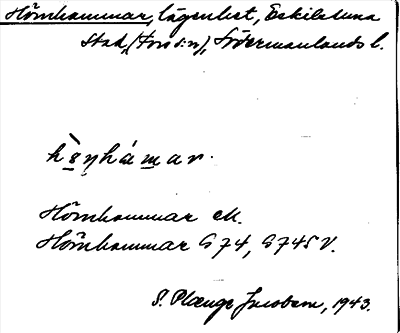 Hörnhammar, lägenhet, Eskilstuna
stad, (Fors sn), Södermanlands l.
hö̀ṇhámar.
Hörnhammar eM.
Hörnhammar G 74, G 74SV.
S. Plænge Jacobson, 1943.